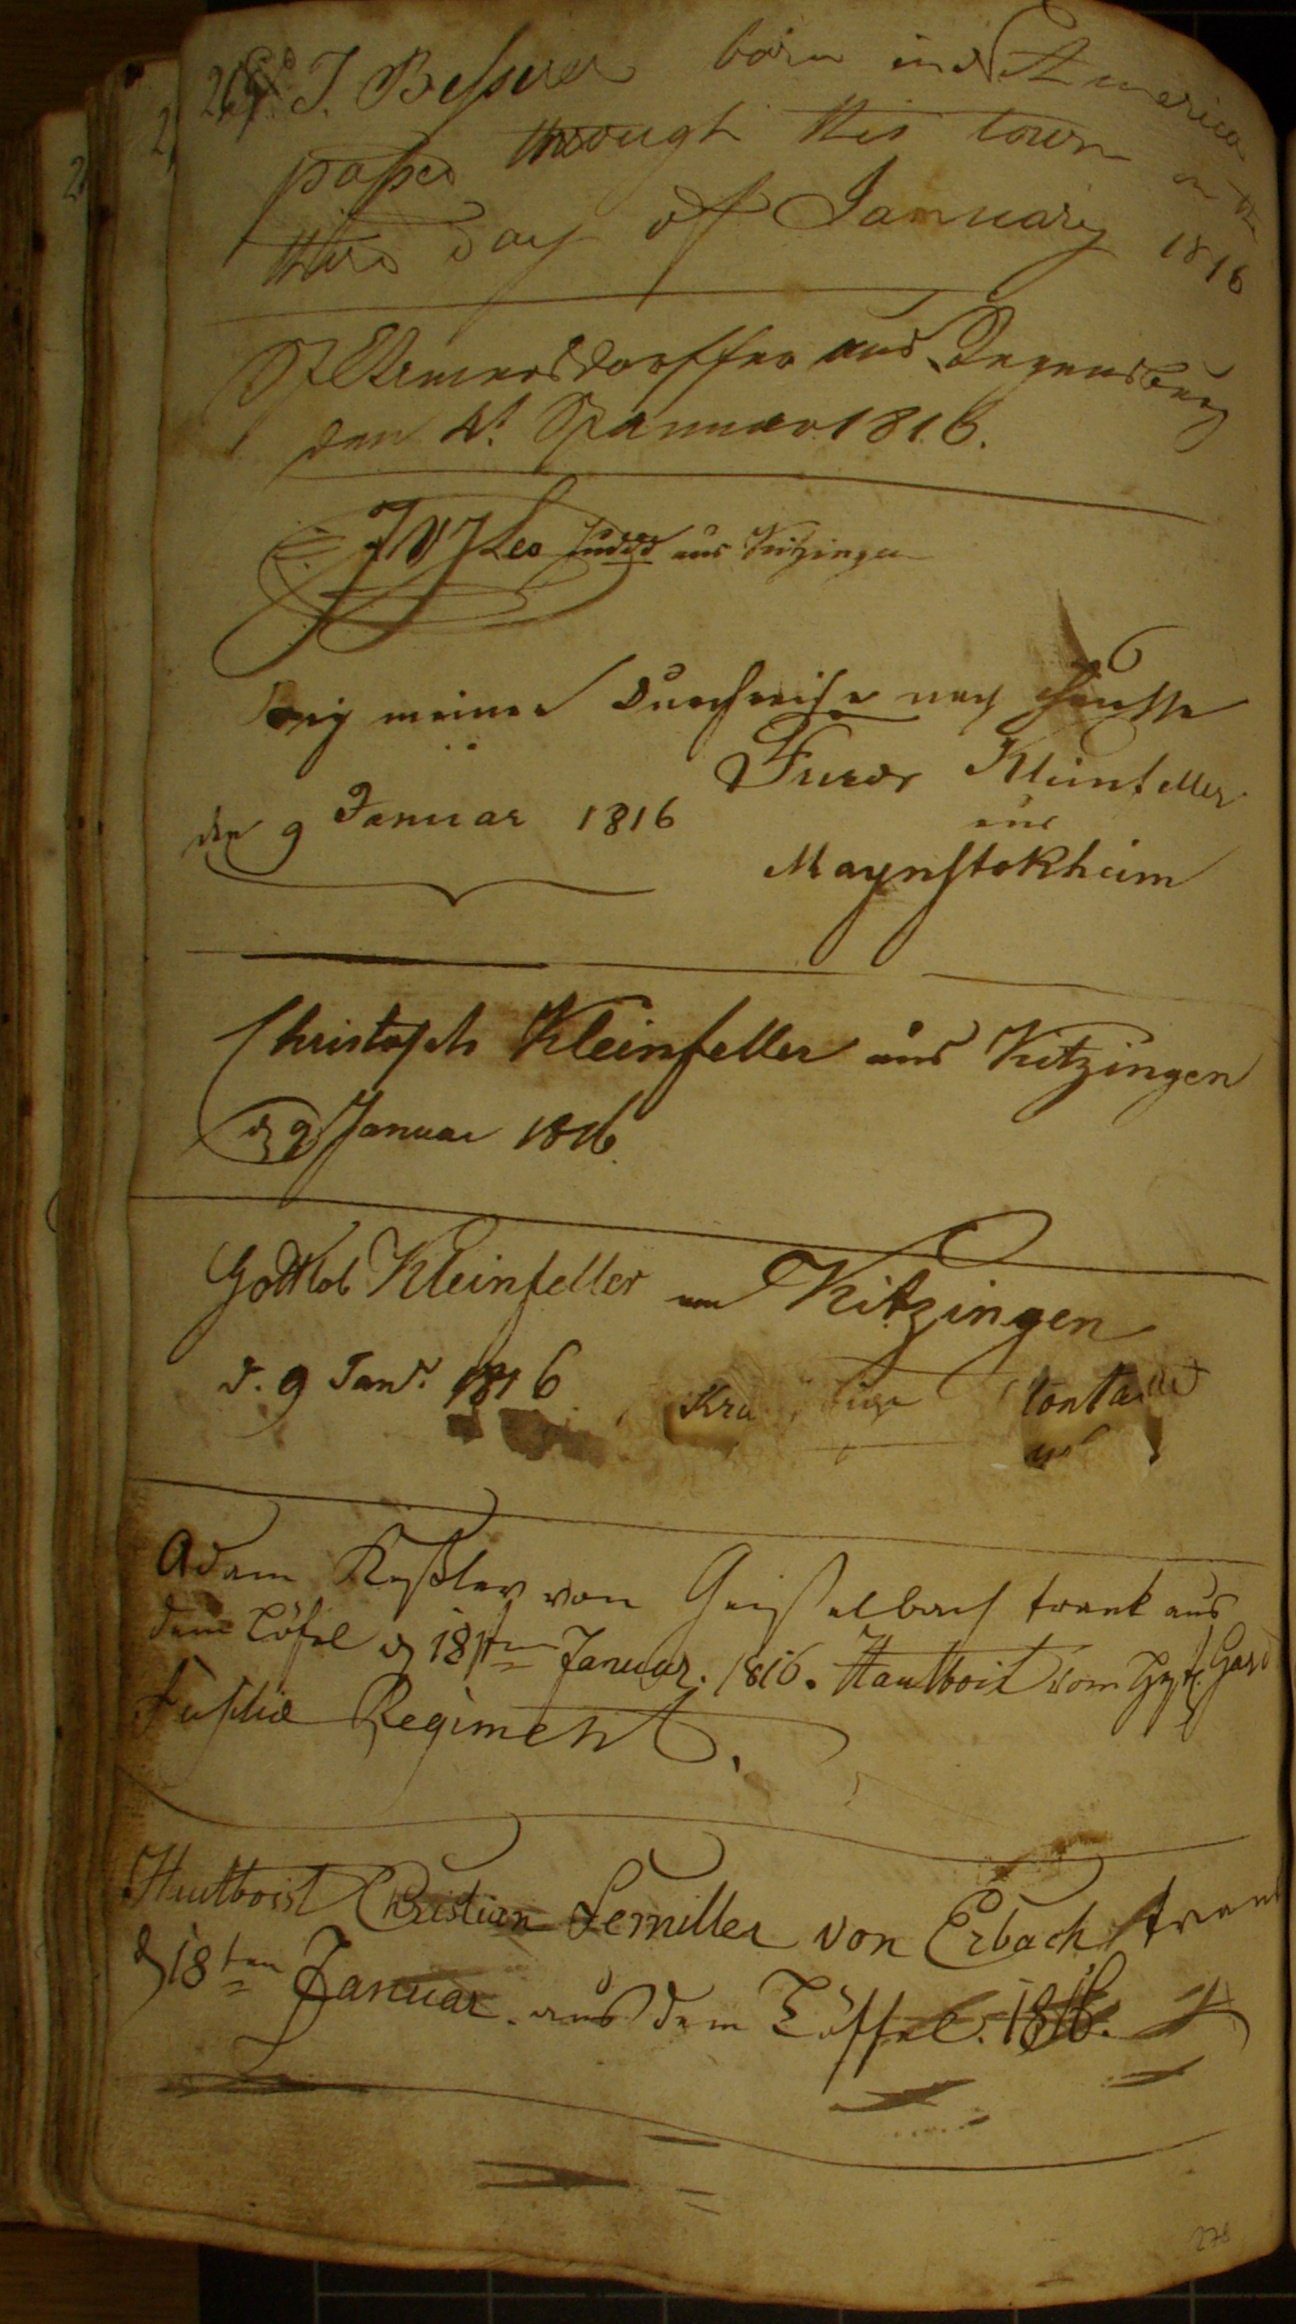 J. Besserer born in America
passed through this town on the
third day of January 1816
aus Regensburg
den 4t. Januar 1816.
aus Kitzingen
Bey meiner Durchreise nach Hausse
Kleinfeller
den 9 Januar 1816 aus
Maynstokheim
Christoph Kleinfeller aus Kitzingen
d 9 Januar 1816
Gottlob Kleinfeller von Kitzingen
d. 9 Janr. 1816
Adam Keßler von Geiselbach trank aus
dem Löfel d 18ten Januar. 1816. Hautboist vom Gard
Fusilie Regiment.
Hautboist Christian Lemiller von Erbach trank
d 18ten Januar. aus dem Löffel. 1816.
278